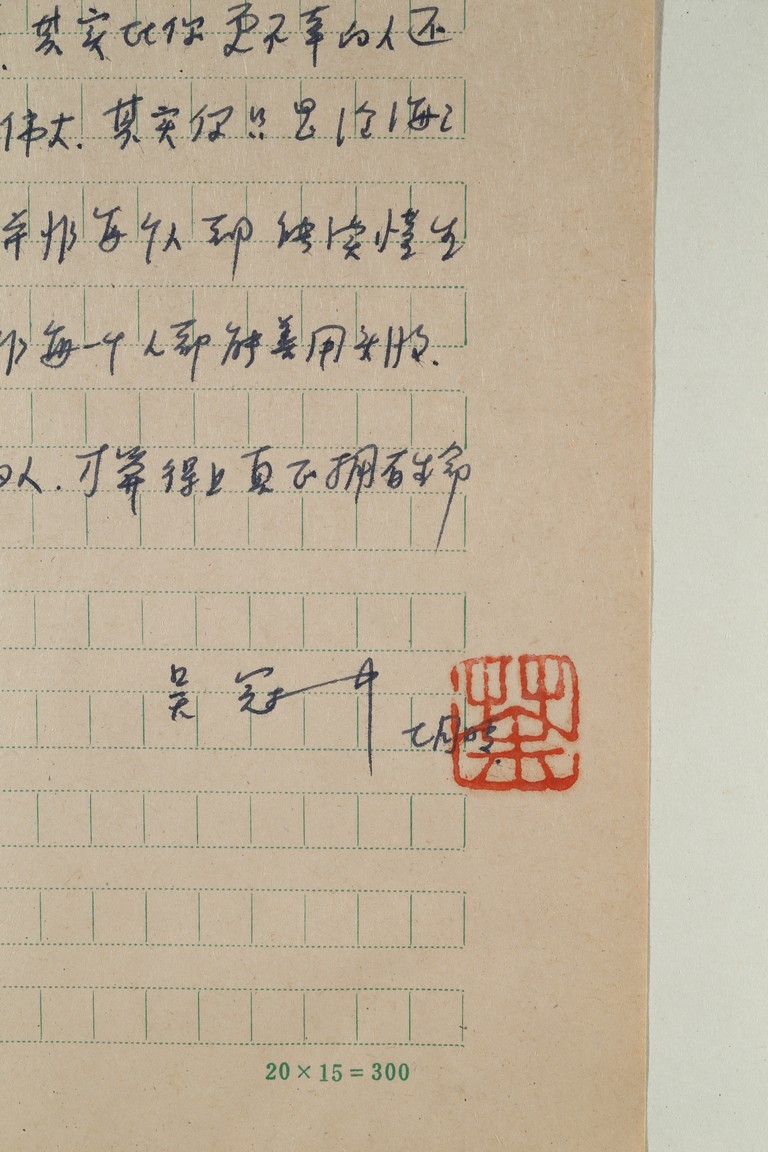 其实比你更不幸的人还
伟大.其实你只是沧海之
并非每个人都能读懂生
非每一个人都能善用失败.
的人.才算得上真正拥有生命
吴冠中
七月
荼
20×15=300